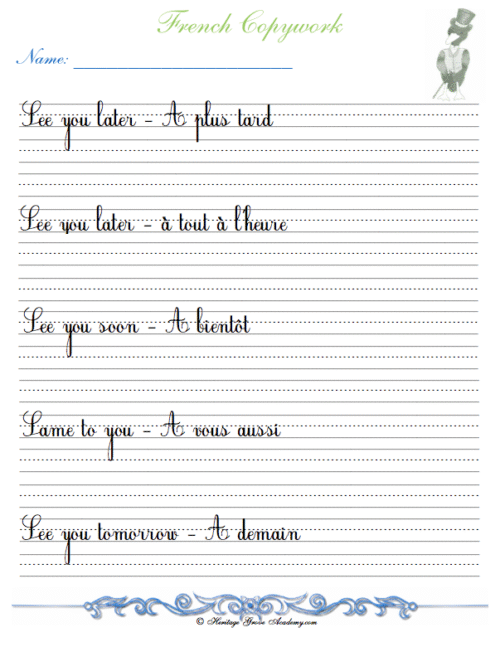 French Copywork
Name:
See you later - A plus tard
See you later - à tout à l'heure
See you soon - A bientôt
Same to you - A vous aussi
See you tomorrow - A demain
© Heritage Grove Academy.com